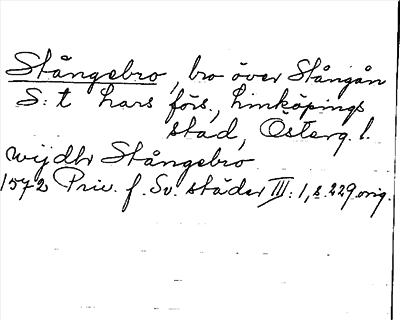 Stångebro, bro över Stångån
S:t Lars förs., Linköpings
stad, Österg. l.
wijdh Stångebro
1572 Priv. f. Sv. städer III: 1, s. 229 orig.